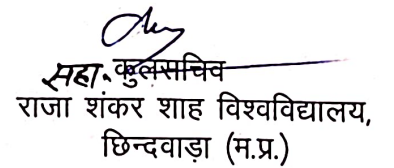 सहा. कुलसचिव
राजा शंकर शाह विश्वविद्यालय,
छिन्दवाड़ा (म.प्र.)